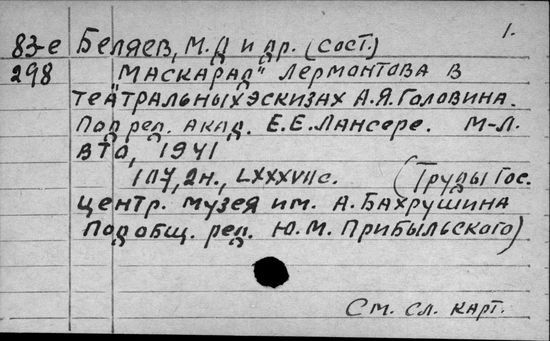 1.
83-е Беляев, М.Д и др. (сост.)
298 "Маскарад" Лермонтова в
театральных эскизах А.Я.Головина.
Под ред. акад. Е.Е.Лансере. М-Л.
ВТО, 1941
LXXXVIIс. (Труды Гос.
центр. музея им. А.Бахрушина
Под общ. ред. Ю.М.Прибыльского)
См. сл. карт.